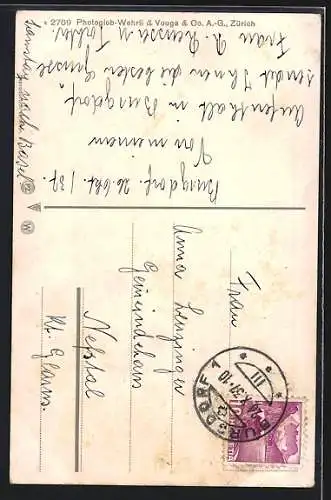 2709 Photoglob-Wehrli & Vouga & Co. A.-G., Zürich
Burgdorf. 26. Okt. / 37.
Von meinem
Aufenthalt in Burgdorf,
sendet Ihnen die besten Grüsse
Frau R.
Samstag nach Basel
Frau
Anna Leuzinger
Gemeindehaus
Netstal
Kt. Glarus.
BURGDORF 1